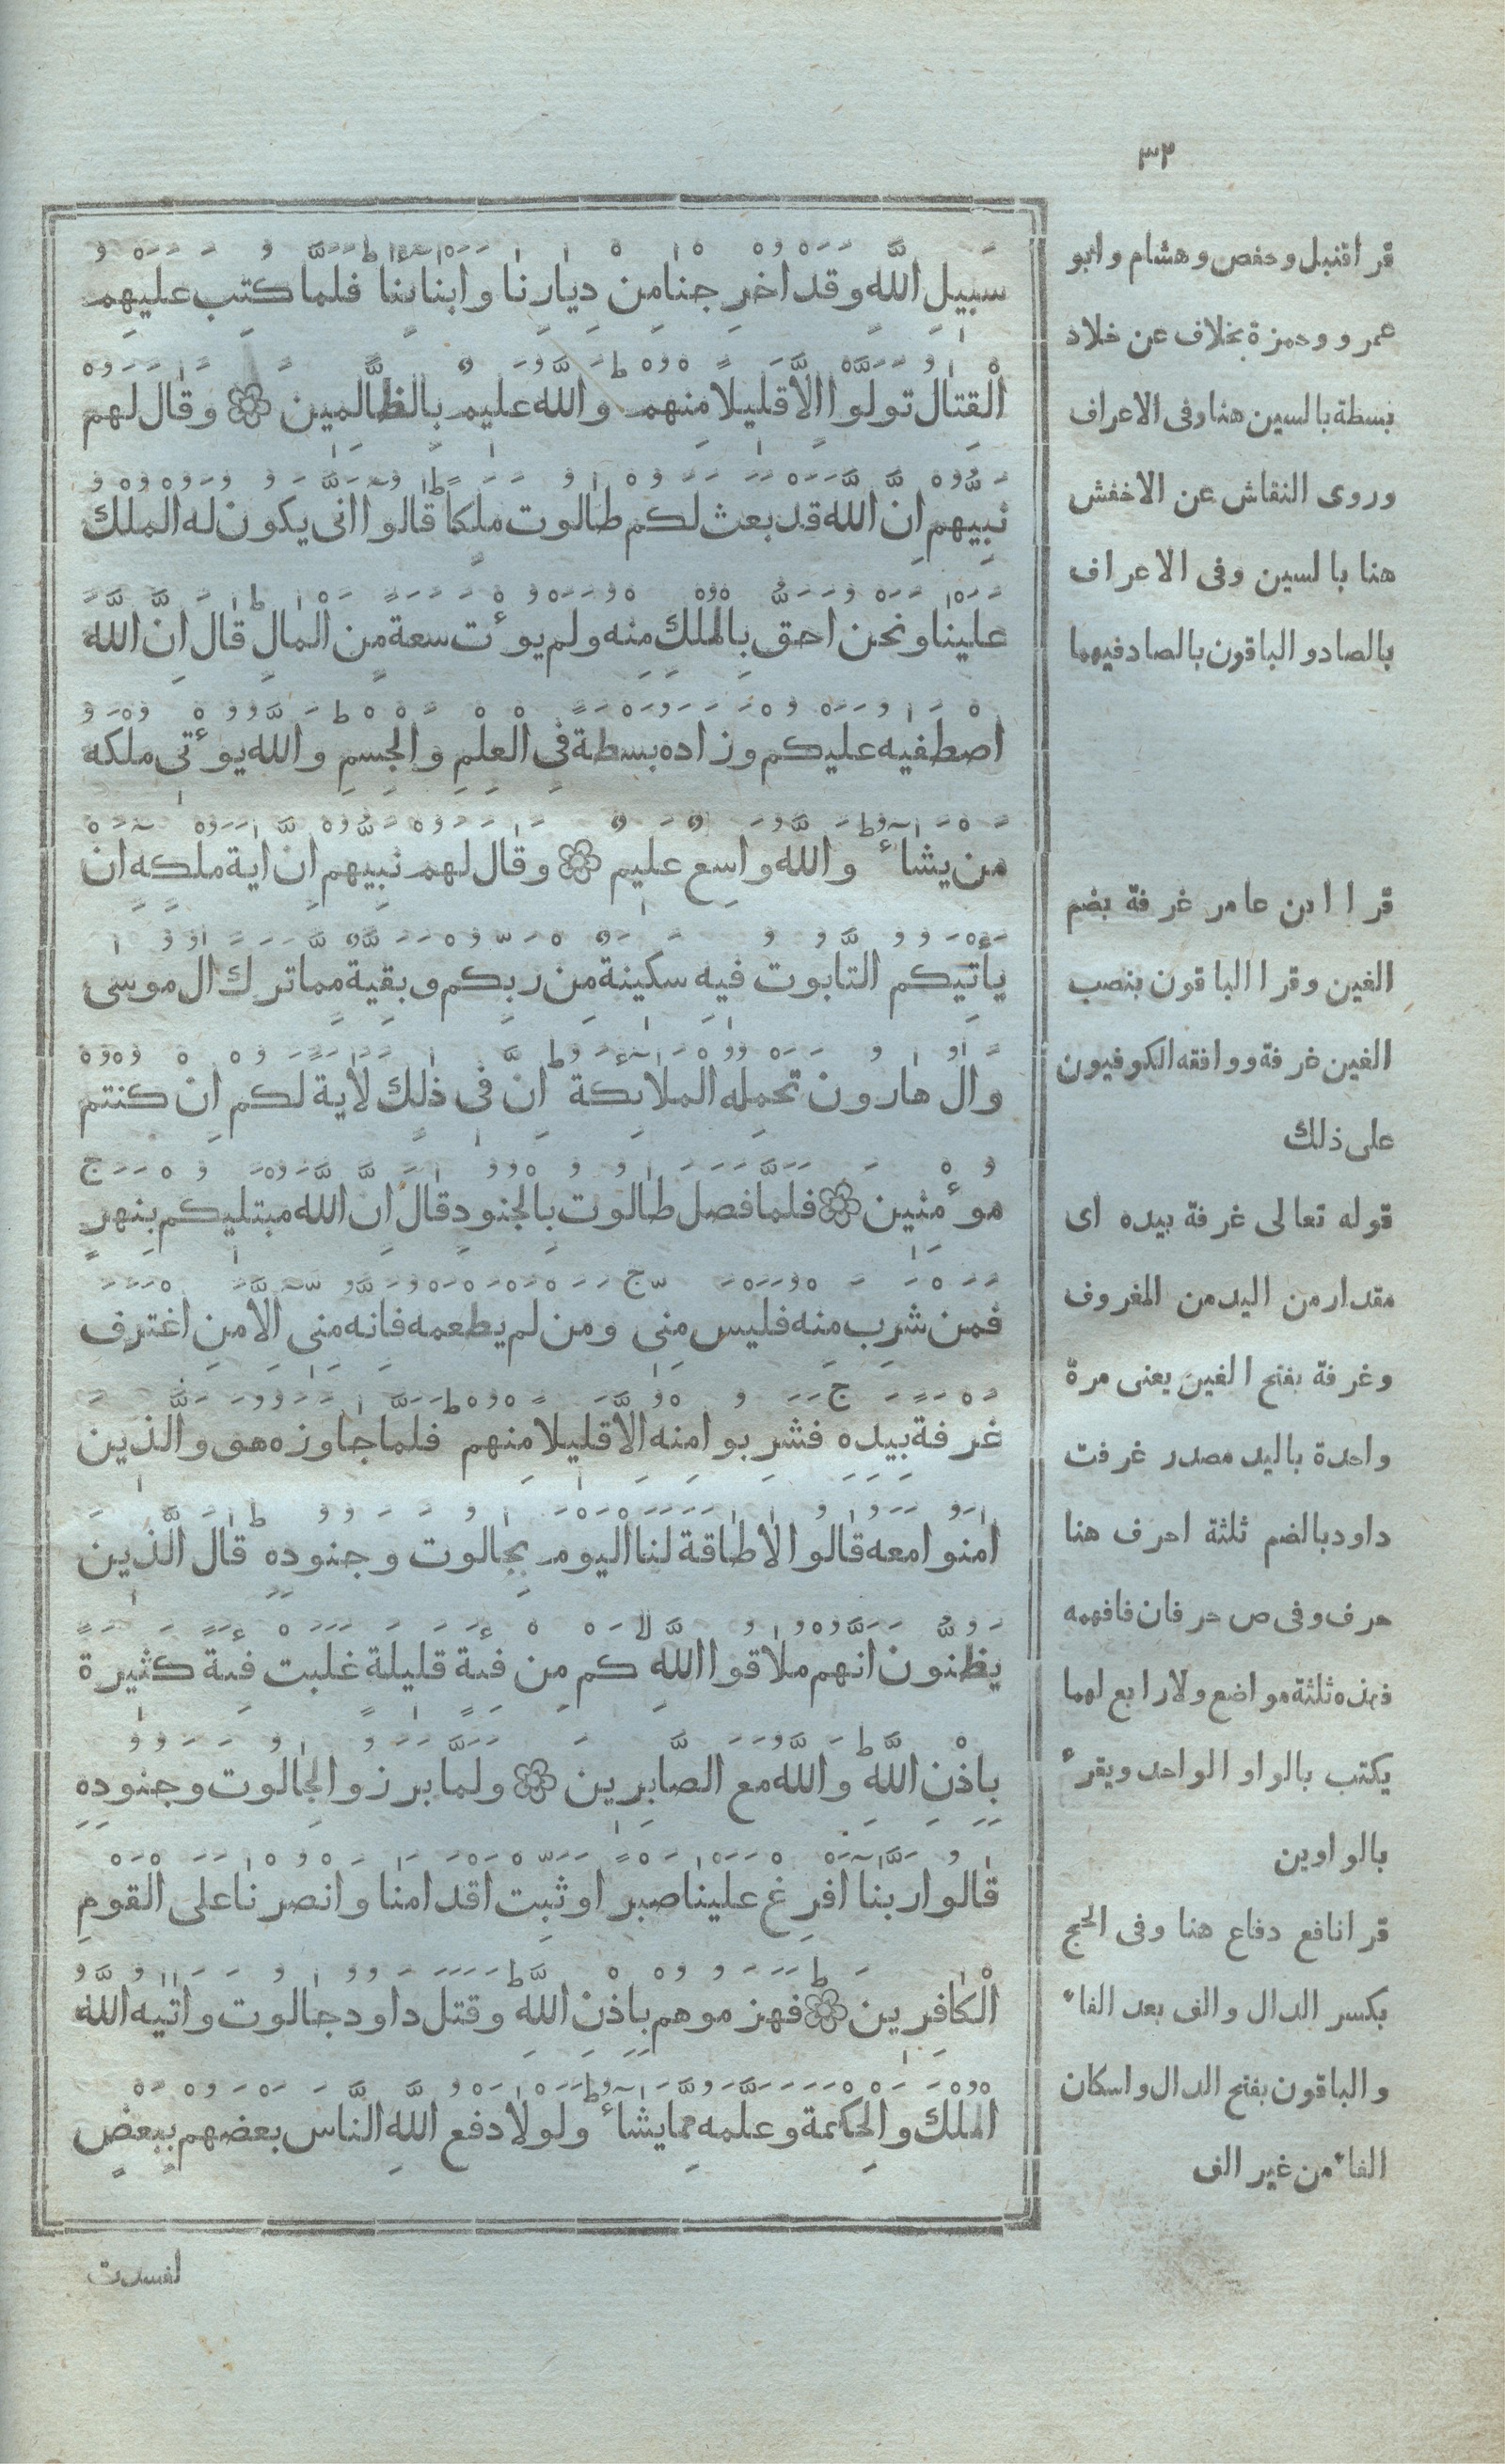 ٣٢
سَبِيلِ اللّٰهِ وَقَدْ اُخْرِجْنَا مِنْ دِيَارِنَا وَاَبْنَاىِٕنَا ط فَلَمَّا كُتِبَ عَلَيْهِمُ
الْقِتَالُ تَوَلَّوْا اِلَّا قَلِيلًا مِنْهُمْ ط وَاللّٰهُ عَلِيمٌ بِالظَّالِمِينَ ۞ وَقَالَ لَهُمْ
نَبِيُّهُمْ اِنَّ اللّٰهَ قَدْ بَعَثَ لَكُمْ طَالُوتَ مَلِكًا ط قَالُوا اَنّٰى يَكُونُ لَهُ الْمُلْكُ
عَلَيْنَا وَنَحْنُ اَحَقُّ بِالْمُلْكِ مِنْهُ وَلَمْ يُوءْتَ سَعَةً مِنَ الْمَالِ ط قَالَ اِنَّ اللّٰهَ
اصْطَفٰيهُ عَلَيْكُمْ وَزَادَهُ بَسْطَةً فِى الْعِلْمِ وَالْجِسْمِ ط وَاللّٰهُ يُوءْتِى مُلْكَهُ
مَنْ يَشَاءُ ط وَاللّٰهُ وَاسِعٌ عَلِيمٌ ۞ وَقَالَ لَهُمْ نَبِيُّهُمْ اِنَّ اٰيَةَ مُلْكِهِ اَنْ
يَأْتِيَكُمُ التَّابُوتُ فِيهِ سَكِينَةٌ مِنْ رَبِّكُمْ وَبَقِيَّةٌ مِمَّا تَرَكَ اٰلُ مُوسٰى
وَاٰلُ هَارُونَ تَحْمِلُهُ الْمَلَاىِٕكَةُ ط اِنَّ فِى ذٰلِكَ لَاٰيَةً لَكُمْ اِنْ كُنْتُمْ
مُوءْمِنِينَ ۞ فَلَمَّا فَصَلَ طَالُوتُ بِالْجُنُودِ قَالَ اِنَّ اللّٰهَ مُبْتَلِيكُمْ بِنَهَرٍ ج
فَمَنْ شَرِبَ مِنْهُ فَلَيْسَ مِنِّى ج وَمَنْ لَمْ يَطْعَمْهُ فَاِنَّهُ مِنِّى اِلَّا مَنِ اغْتَرَفَ
غَرْفَةً بِيَدِهِ ج فَشَرِبُوا مِنْهُ اِلَّا قَلِيلًا مِنْهُمْ ط فَلَمَّا جَاوَزَهُ هُوَ وَالَّذِينَ
اٰمَنُوا مَعَهُ قَالُوا لَا طَاقَةَ لَنَا الْيَوْمَ بِجَالُوتَ وَجُنُودِهِ ط قَالَ الَّذِينَ
يَظُنُّونَ اَنَّهُمْ مُلَاقُوا اللّٰهِ لا كَمْ مِنْ فِىَٕةٍ قَلِيلَةٍ غَلَبَتْ فِىَٕةً كَثِيرَةً
بِاِذْنِ اللّٰهِ ط وَاللّٰهُ مَعَ الصَّابِرِينَ ۞ وَلَمَّا بَرَزُوا لِجَالُوتَ وَجُنُودِهِ
قَالُوا رَبَّنَا اَفْرِغْ عَلَيْنَا صَبْرًا وَثَبِّتْ اَقْدَامَنَا وَانْصُرْنَا عَلَى الْقَوْمِ
الْكَافِرِينَ ط ۞ فَهَزَمُوهُمْ بِاِذْنِ اللّٰهِ ط وَقَتَلَ دَاوُدُ جَالُوتَ وَاٰتٰيهُ اللّٰهُ
الْمُلْكَ وَالْحِكْمَةَ وَعَلَّمَهُ مِمَّا يَشَاءُ ط وَلَوْلَا دَفْعُ اللّٰهِ النَّاسَ بَعْضَهُمْ بِبَعْضٍ
لفسدت
قرا قنبل وحفص وهشام وابو
عمرو وحمزة بخلاف عن خلاد
بسطة بالسين هنا وفى الاعراف
وروى النقاش عن الاخفش
هنا بالسين وفى الاعراف
بالصاد والباقون بالصاد فيهما
قرا ابن عامر غرفة بضم
الغين وقرا الباقون بنصب
الغين غرفة ووافقه الكوفيون
على ذلك
قوله تعالى غرفة بيده اى
مقدار من اليد من المغروف
وغرفة بفتح الغين يعنى مرة
واحدة باليد مصدر غرفت
داود بالضم ثلثة احرف هنا
حرف وفى ص حرفان فافهمه
فهذه ثلثة مواضع ولا رابع لهما
يكتب بالواو الواحد ويقرء
بالواوين
قرا نافع دفاع هنا وفى الحج
بكسر الدال والف بعد الفاء
والباقون بفتح الدال واسكان
الفاء من غير الف